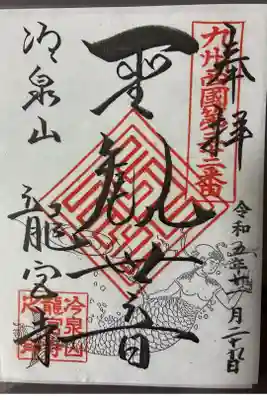 奉拝
九州西國第三十二番
聖観世音
冷泉山
龍宮寺
冷泉山
龍宮寺
之印
令和五年